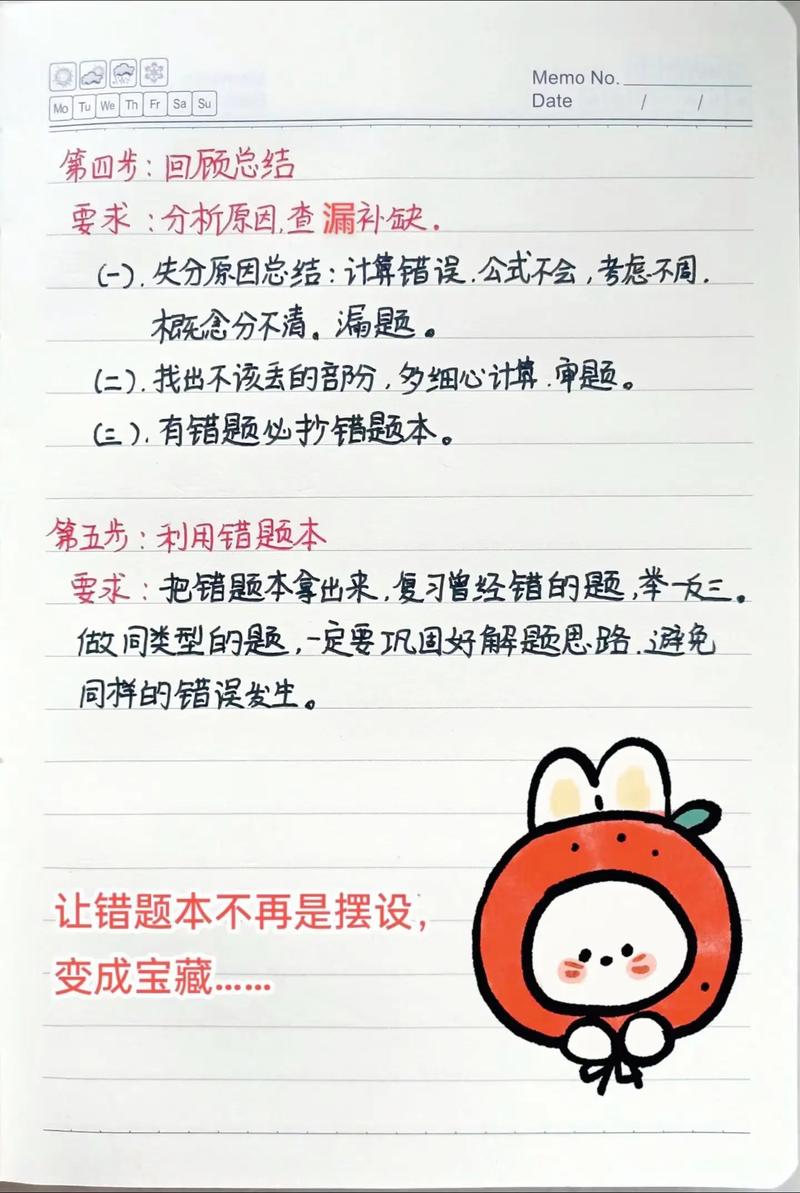 Memo No.
Mo Tu We Th Fr Sa Su
Date / /
第四步：回顾总结
要求：分析原因,查漏补缺.
(一).失分原因总结:计算错误.公式不会,考虑不周.
概念分不清。漏题。
(二).找出不该丢的部分,多细心计算.审题。
(三).有错题必抄错题本。
第五步：利用错题本
要求：把错题本拿出来,复习曾经错的题,举一反三。
做同类型的题,一定要巩固好解题思路.避免
同样的错误发生。
让错题本不再是摆设，
变成宝藏……